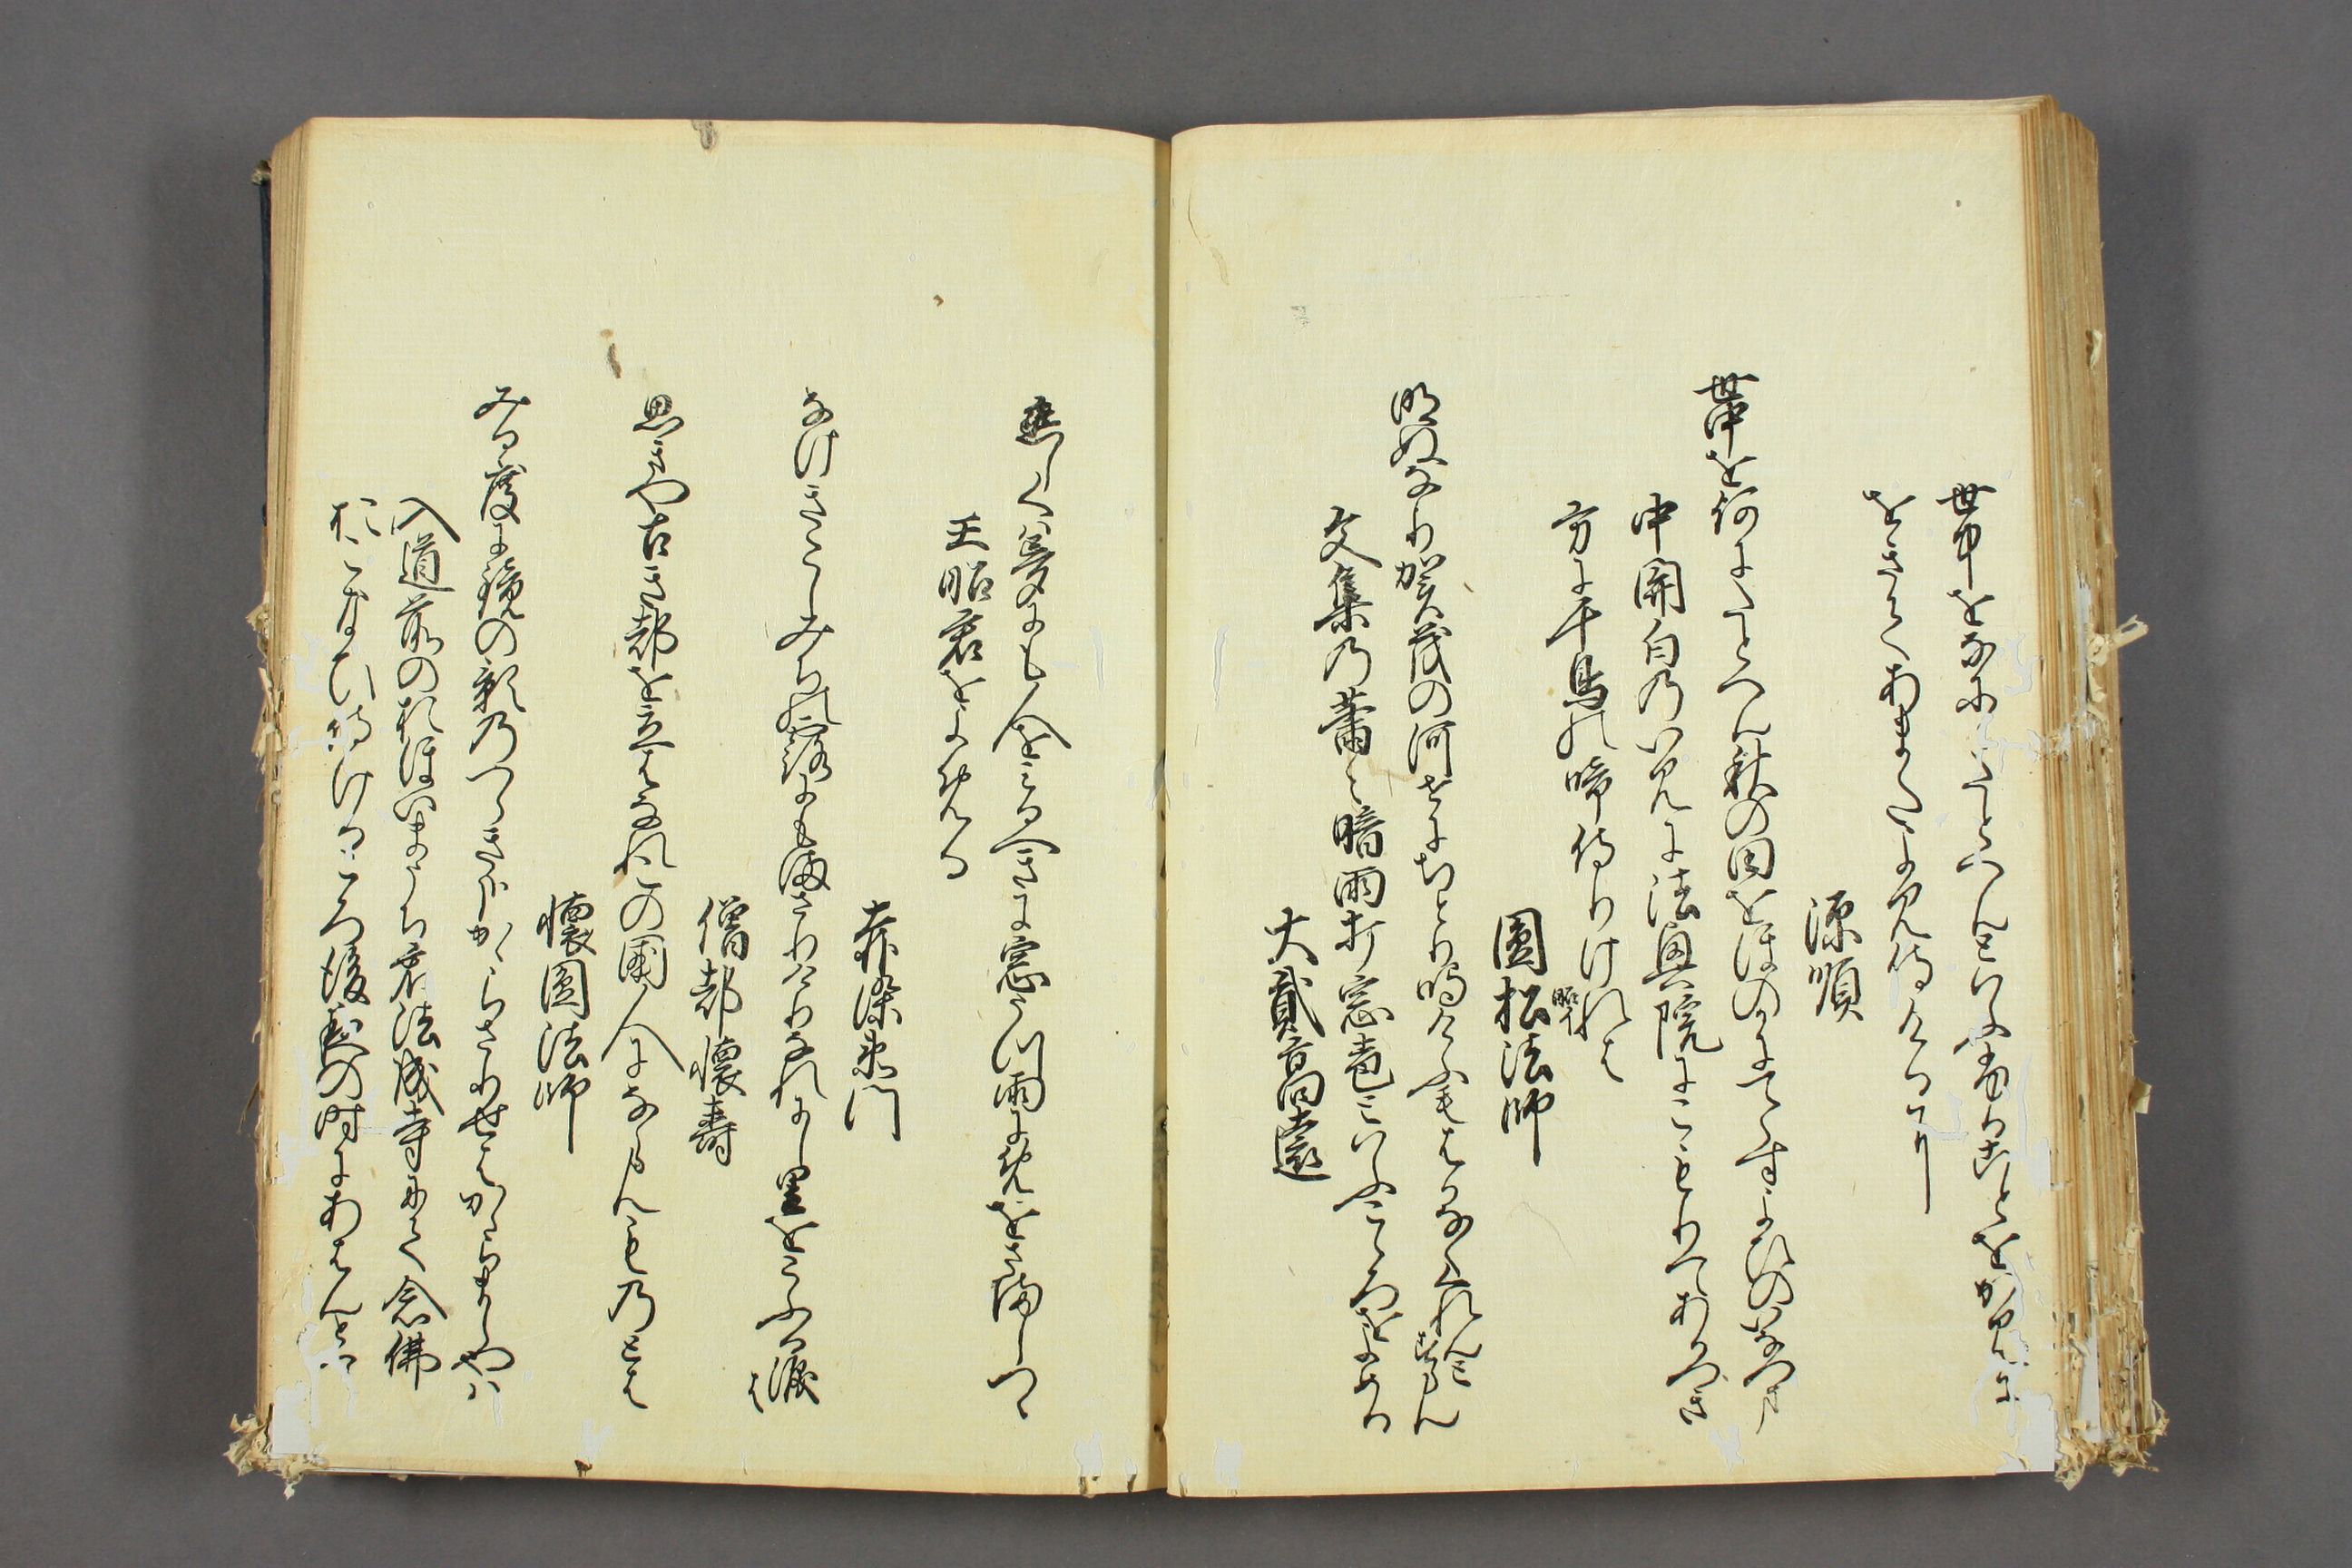 世中をなにゝたとへんといふふることをかみに
をきてあまたよみ侍けるに
源順
世中を何にたとへん秋の田をほのかにてらすよひのいなつま
中関白のいみに法興院にこもりてあかつき
方に千鳥の啼侍りけれは
圓松法師
明ぬなり賀茂の河せにちとり鳴けふもはかなくくれんとすらん
文集の蕭々暗雨打窓声といふこゝろをよめる
大貳高遠
恋しくは夢にも人をみるへきに窓うつ雨にめをさましつゝ
王昭君をよめる
赤染衛門
なけきこしみちの露にもまさりけりなれにし里をこふる涙は
僧都懐壽
思きや古き都を立はなれこの國人にならんものとは
懐圓法師
みる度に鏡の影のつらきかなかゝらさりせはかゝらましやは
入道前のおほいまうち君法成寺にて念佛
おこなひ侍けるころ後夜の時にあはんとて